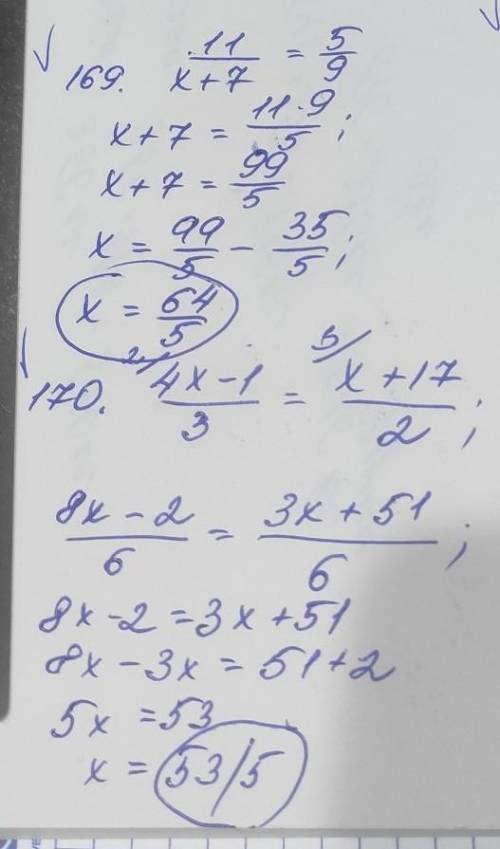 169. 11/(x+7) = 5/9
x+7 = 11·9/5;
x+7 = 99/5
x = 99/5 − 35/5;
x = 64/5
170. 2/ (4x−1)/3 = 3/ (x+17)/2;
(8x−2)/6 = (3x+51)/6;
8x−2=3x+51
8x−3x = 51+2
5x = 53
x = 53/5